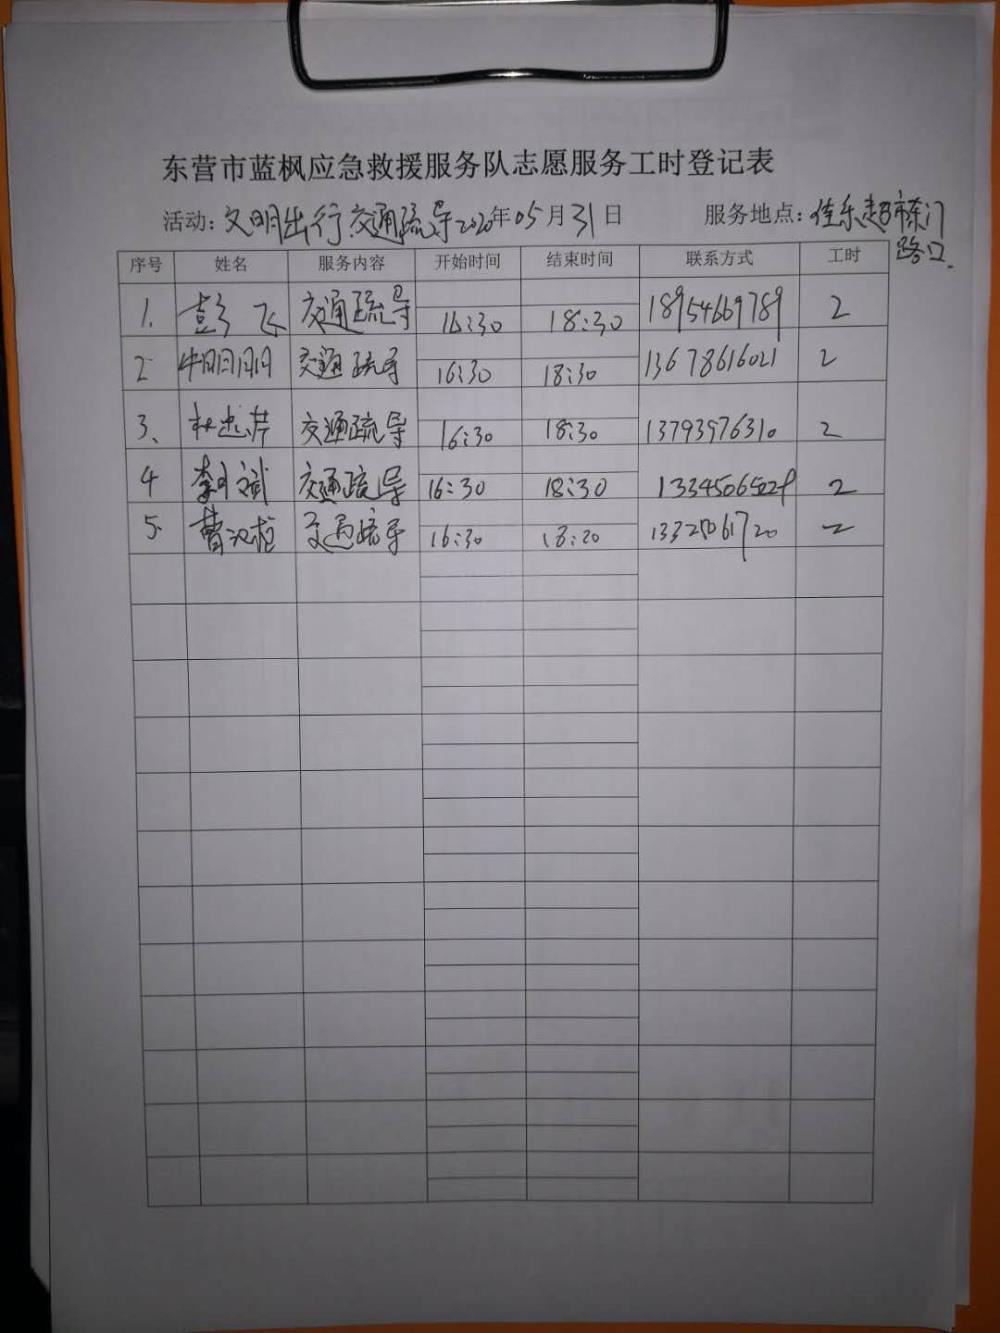 东营市蓝枫应急救援服务队志愿服务工时登记表
活动：文明出行交通疏导2020年05月31日 服务地点：佳乐超市东门路口.
序号 姓名 服务内容 开始时间 结束时间 联系方式 工时
1. 彭飞 交通疏导 16:30 18:30 18954669789 2
2 交通疏导 16:30 18:30 13678616021 2
3、 杜忠芹 交通疏导 16:30 18:30 13793976310 2
4 交通疏导 16:30 18:30 2
5. 曹 交通疏导 16:30 2